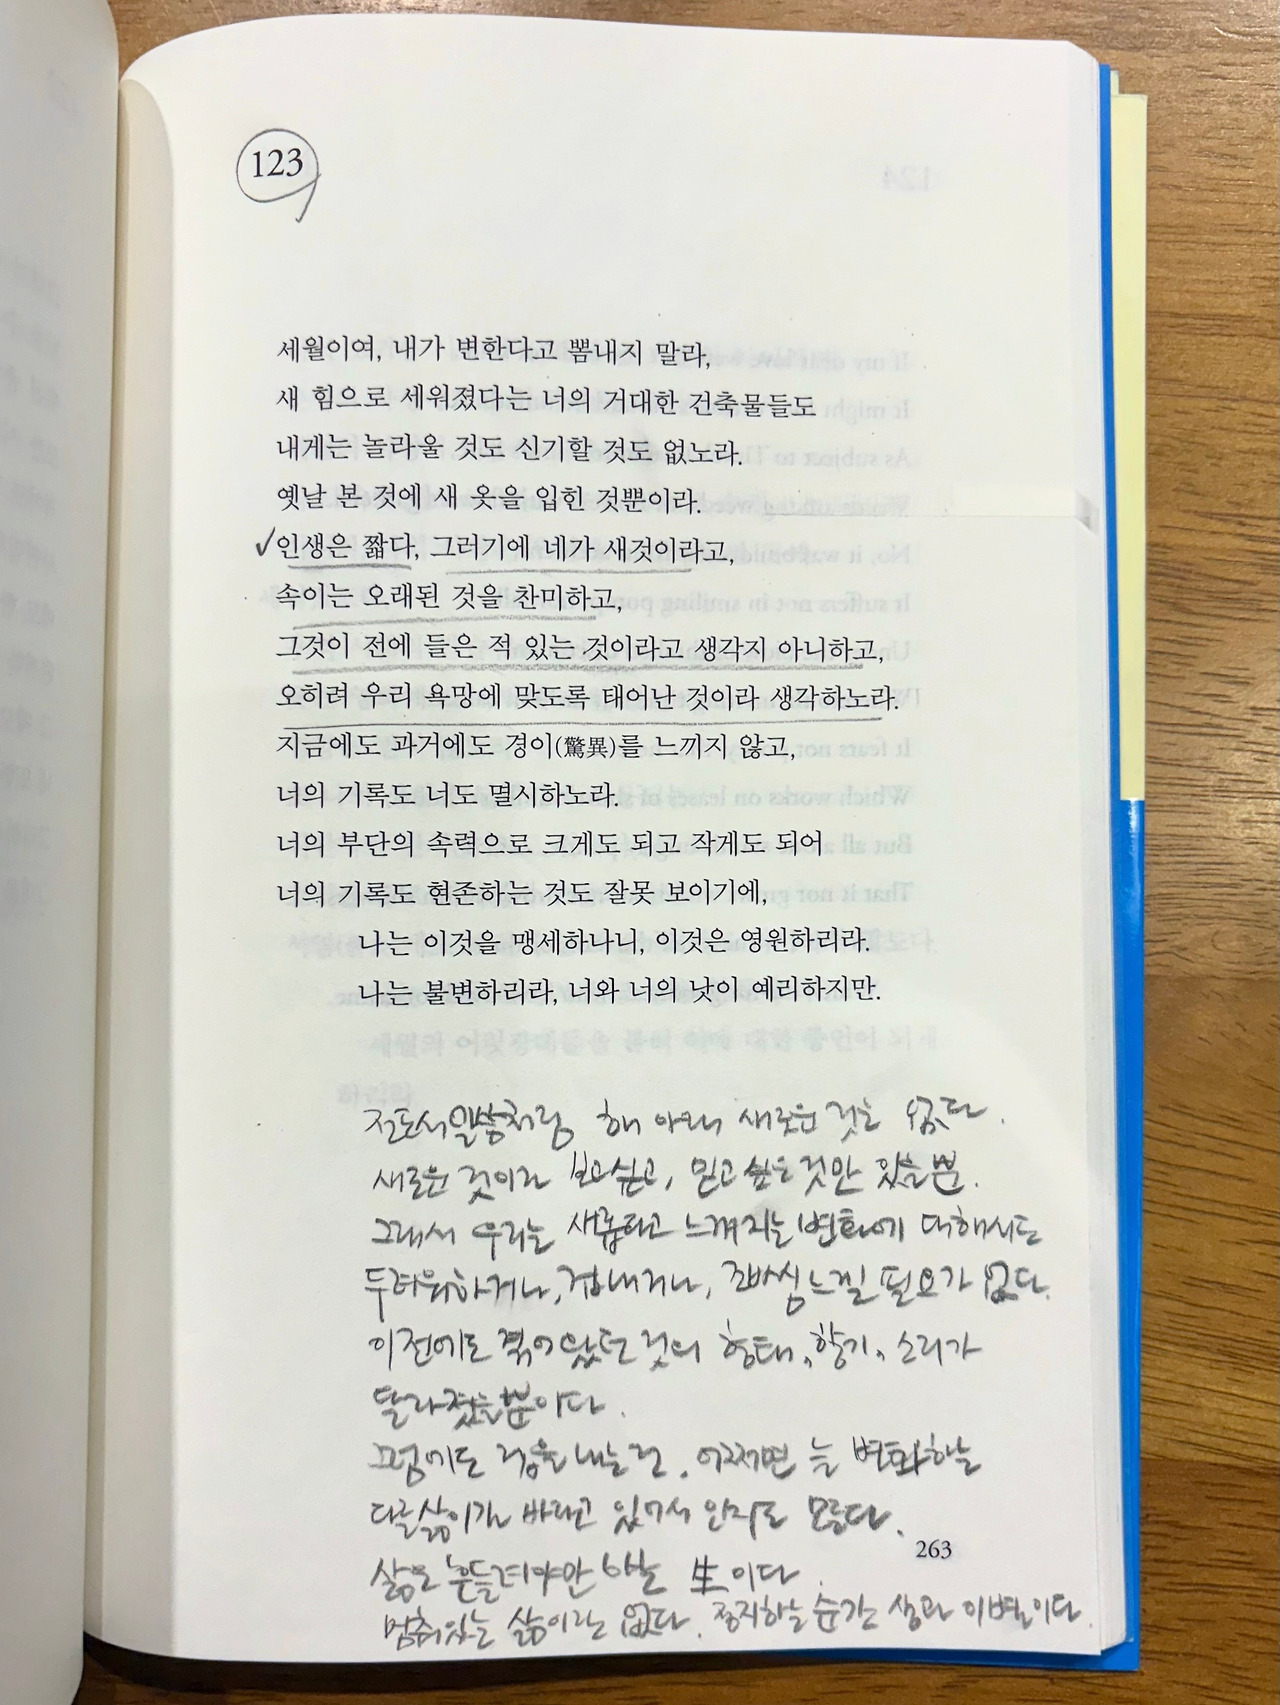 123
세월이여, 내가 변한다고 뽐내지 말라,
새 힘으로 세워졌다는 너의 거대한 건축물들도
내게는 놀라울 것도 신기할 것도 없노라.
옛날 본 것에 새 옷을 입힌 것뿐이라.
인생은 짧다, 그러기에 네가 새것이라고,
속이는 오래된 것을 찬미하고,
그것이 전에 들은 적 있는 것이라고 생각지 아니하고,
오히려 우리 욕망에 맞도록 태어난 것이라 생각하노라.
지금에도 과거에도 경이(驚異)를 느끼지 않고,
너의 기록도 너도 멸시하노라.
너의 부단의 속력으로 크게도 되고 작게도 되어
너의 기록도 현존하는 것도 잘못 보이기에,
나는 이것을 맹세하나니, 이것은 영원하리라.
나는 불변하리라, 너와 너의 낫이 예리하지만.
전도서 말씀처럼 해 아래 새로운 것은 없다.
새로운 것이라 보고싶고, 믿고 싶은 것만 있을 뿐.
그래서 우리는 새롭다고 느껴지는 변화에 대해서도
두려워하거나, 겁내거나, 조바심 느낄 필요가 없다.
이전에도 겪어 왔던 것의 형태, 향기, 소리가
달라졌을 뿐이다.
그럼에도 겁을 내는 건, 어쩌면 늘 변화하는
다른 삶이길 바라고 있어서 인지도 모른다.
삶은 흔들려야만 하는 生이다.
멈춰있는 삶이란 없다. 정지하는 순간 생과 이별이다.
263